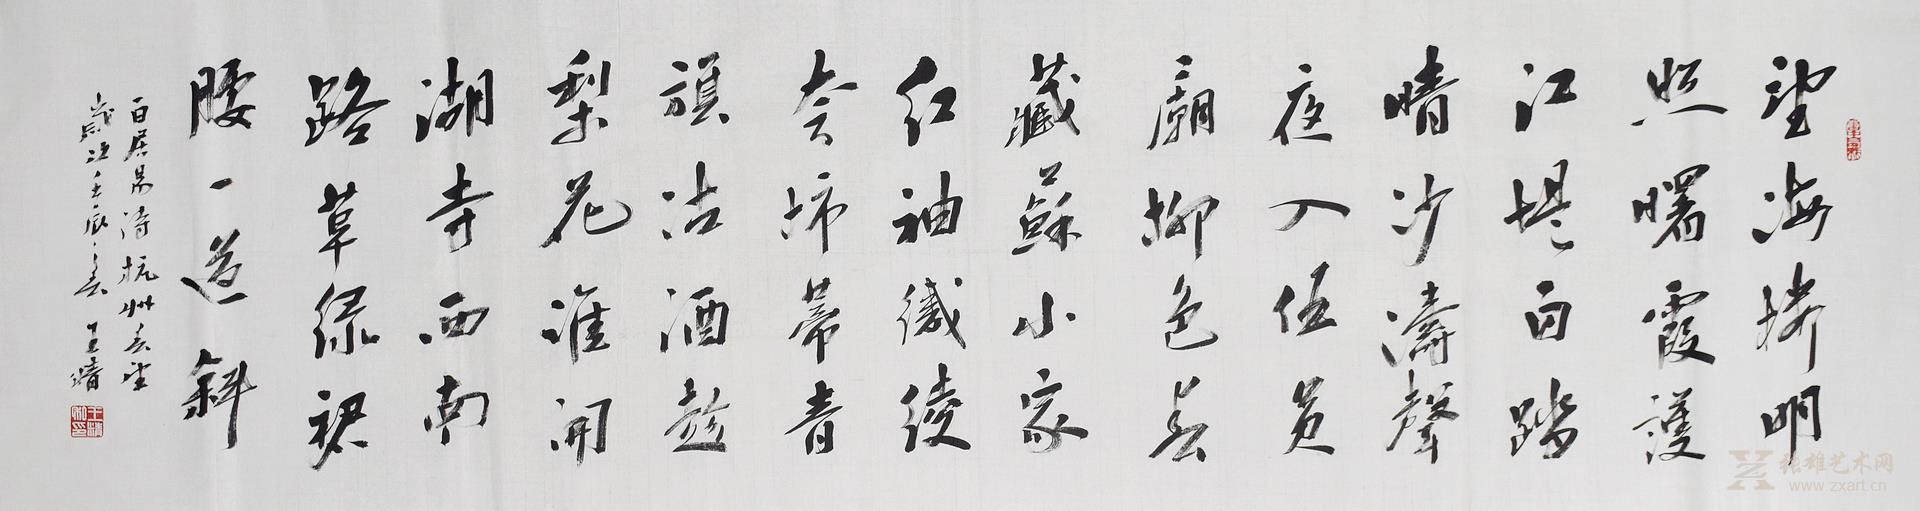 望海楼明
照曙霞護
江堤白踏
晴沙濤聲
夜入伍員
廟柳色春
藏蘇小家
红袖織綾
夸柿蒂青
旗沽酒趂
梨花誰開
湖寺西南
路草绿裙
腰一道斜
白居易诗杭州春望
歲次壬辰之春 王清
张雄艺术网
www.zxart.cn